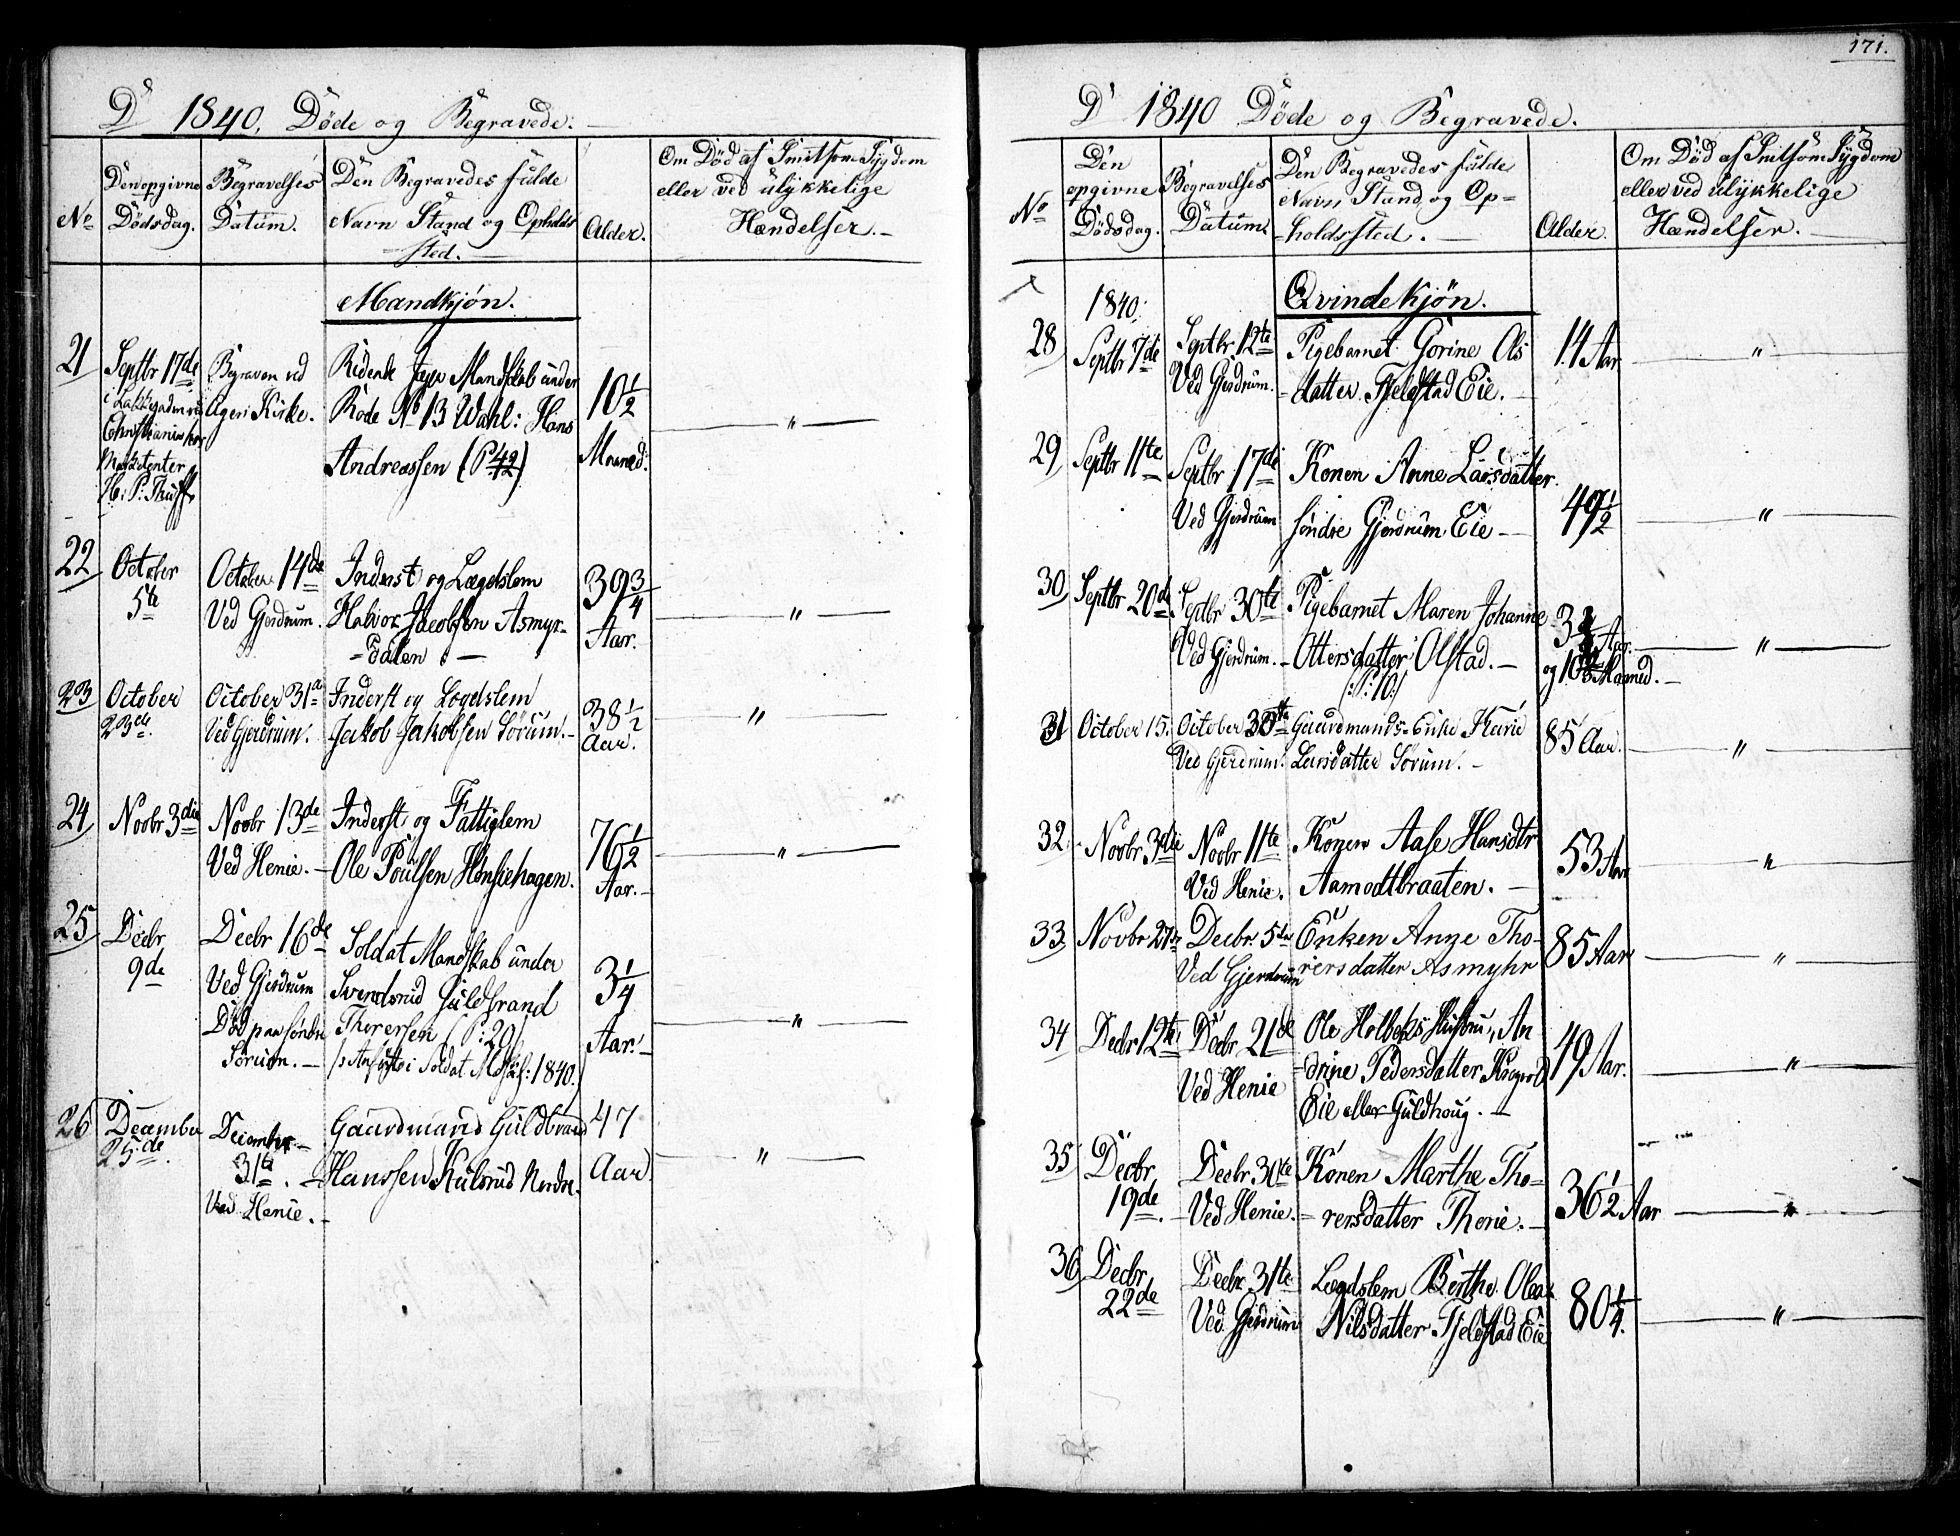 D 1840. Döde og Begravede.
No
Den opgivne
Dödsdag.
Begravelses
Datum.
Den Begravedes fulde
Navn Stand og Opholds
sted.
Alder.
Om Död af Smitsom Sygdom
eller ved ulykkelige
Hændelser.
Mandkjön.
21
Septbr 17de
i
Christiania hos
Marketenter
H: P:
Begraven ved
Agers Kirke.
Ridende Jæger Mandskab under
Rode No 13 Wahl: Hans
Andreassen (P 42)
10 1/2
Maaned.
"
22
October
5te
October 14de
Ved Gjerdrum.
Inderst og Lægdslem
Halvor Jacobsen Asmyr=
=dalen.
39 3/4
Aar.
"
23
October
23de.
October 31te
Ved Gjerdrum.
Inderst og Lægdslem
Jakob Jakobsen Sörum.
38 1/2
Aar.
"
24
Novbr 3die
Novbr 13de
Ved Henie.
Inderst og Fattiglem
Ole Poulsen Hönsiehagen.
76 1/2
Aar.
"
25
Decbr
9de
Decbr 16de
Ved Gjerdrum
Död paa söndre
Sörum.
Soldat Mandskab under
Svendsrud Guldbrand
Thorersen (P: 20)
Anförte i Soldat : 1840.
3 1/4
Aar.
"
26
December
25de.
December
31te.
Ved Henie.
Gaardmand Guldbrand
Hanssen Kulsrud Nordre.
47
Aar
"
171.
D 1840 Döde og Begravede.
No
Den
opgivne
Dödsdag.
Begravelses
Datum.
Den Begravedes fulde
Navn, Stand og Op=
=holdssted.
Alder.
Om Död af Smitsom Sygdom
eller ved ulykkelige
Hændelser.
1840.
Qvindekjön.
28
Septbr 7de
Septbr 12te
Ved Gjerdrum.
Pigebarnet Gorine Ols
=datter Fjeldstad Eie.
14 Aar
"
29
Septbr 11te
Septbr 17de
Ved Gjerdrum
Konen Anne Larsdatter
söndre Gjerdrum Eie
49 1/2
"
30
Septbr 20de
Septbr 30te
Ved Gjerdrum.
Pigebarnet Maren Johanne
Ottersdatter Olstad.
(: P: 10:)
3 Aar
og 10 Maaned.
"
31
October 15.
October 30te
Ved Gjerdrum.
Gaardmands-Enke Karie
Larsdatter Sörum.
85 Aar.
"
32
Novbr 3die
Novbr 11te
Ved Henie.
Konen Aase Hansdtr
Aamodtbraaten.
53 Aar
"
33
Novbr 27de
Decbr. 5te
Ved Gjerdrum
Enken Anne Tho-
rersdatter Asmyhr
85 Aar
"
34
Decbr 12te
Decbr 21de
Ved Henie
Ole Holbeks Hustru, An
=drine Pedersdatter Kogerod
Eie eller Guldhoug.
49 Aar.
"
35
Decbr
19de.
Decbr 30te
Ved Henie.
Konen Marthe Tho=
=rersdatter Thonie.
36 1/2 Aar
"
36
Decbr
22de
Decbr 31te
Ved Gjerdrum
Lægdslem Berthe Olea
Nilsdatter Fjeldstad Eie
80 1/4.
"